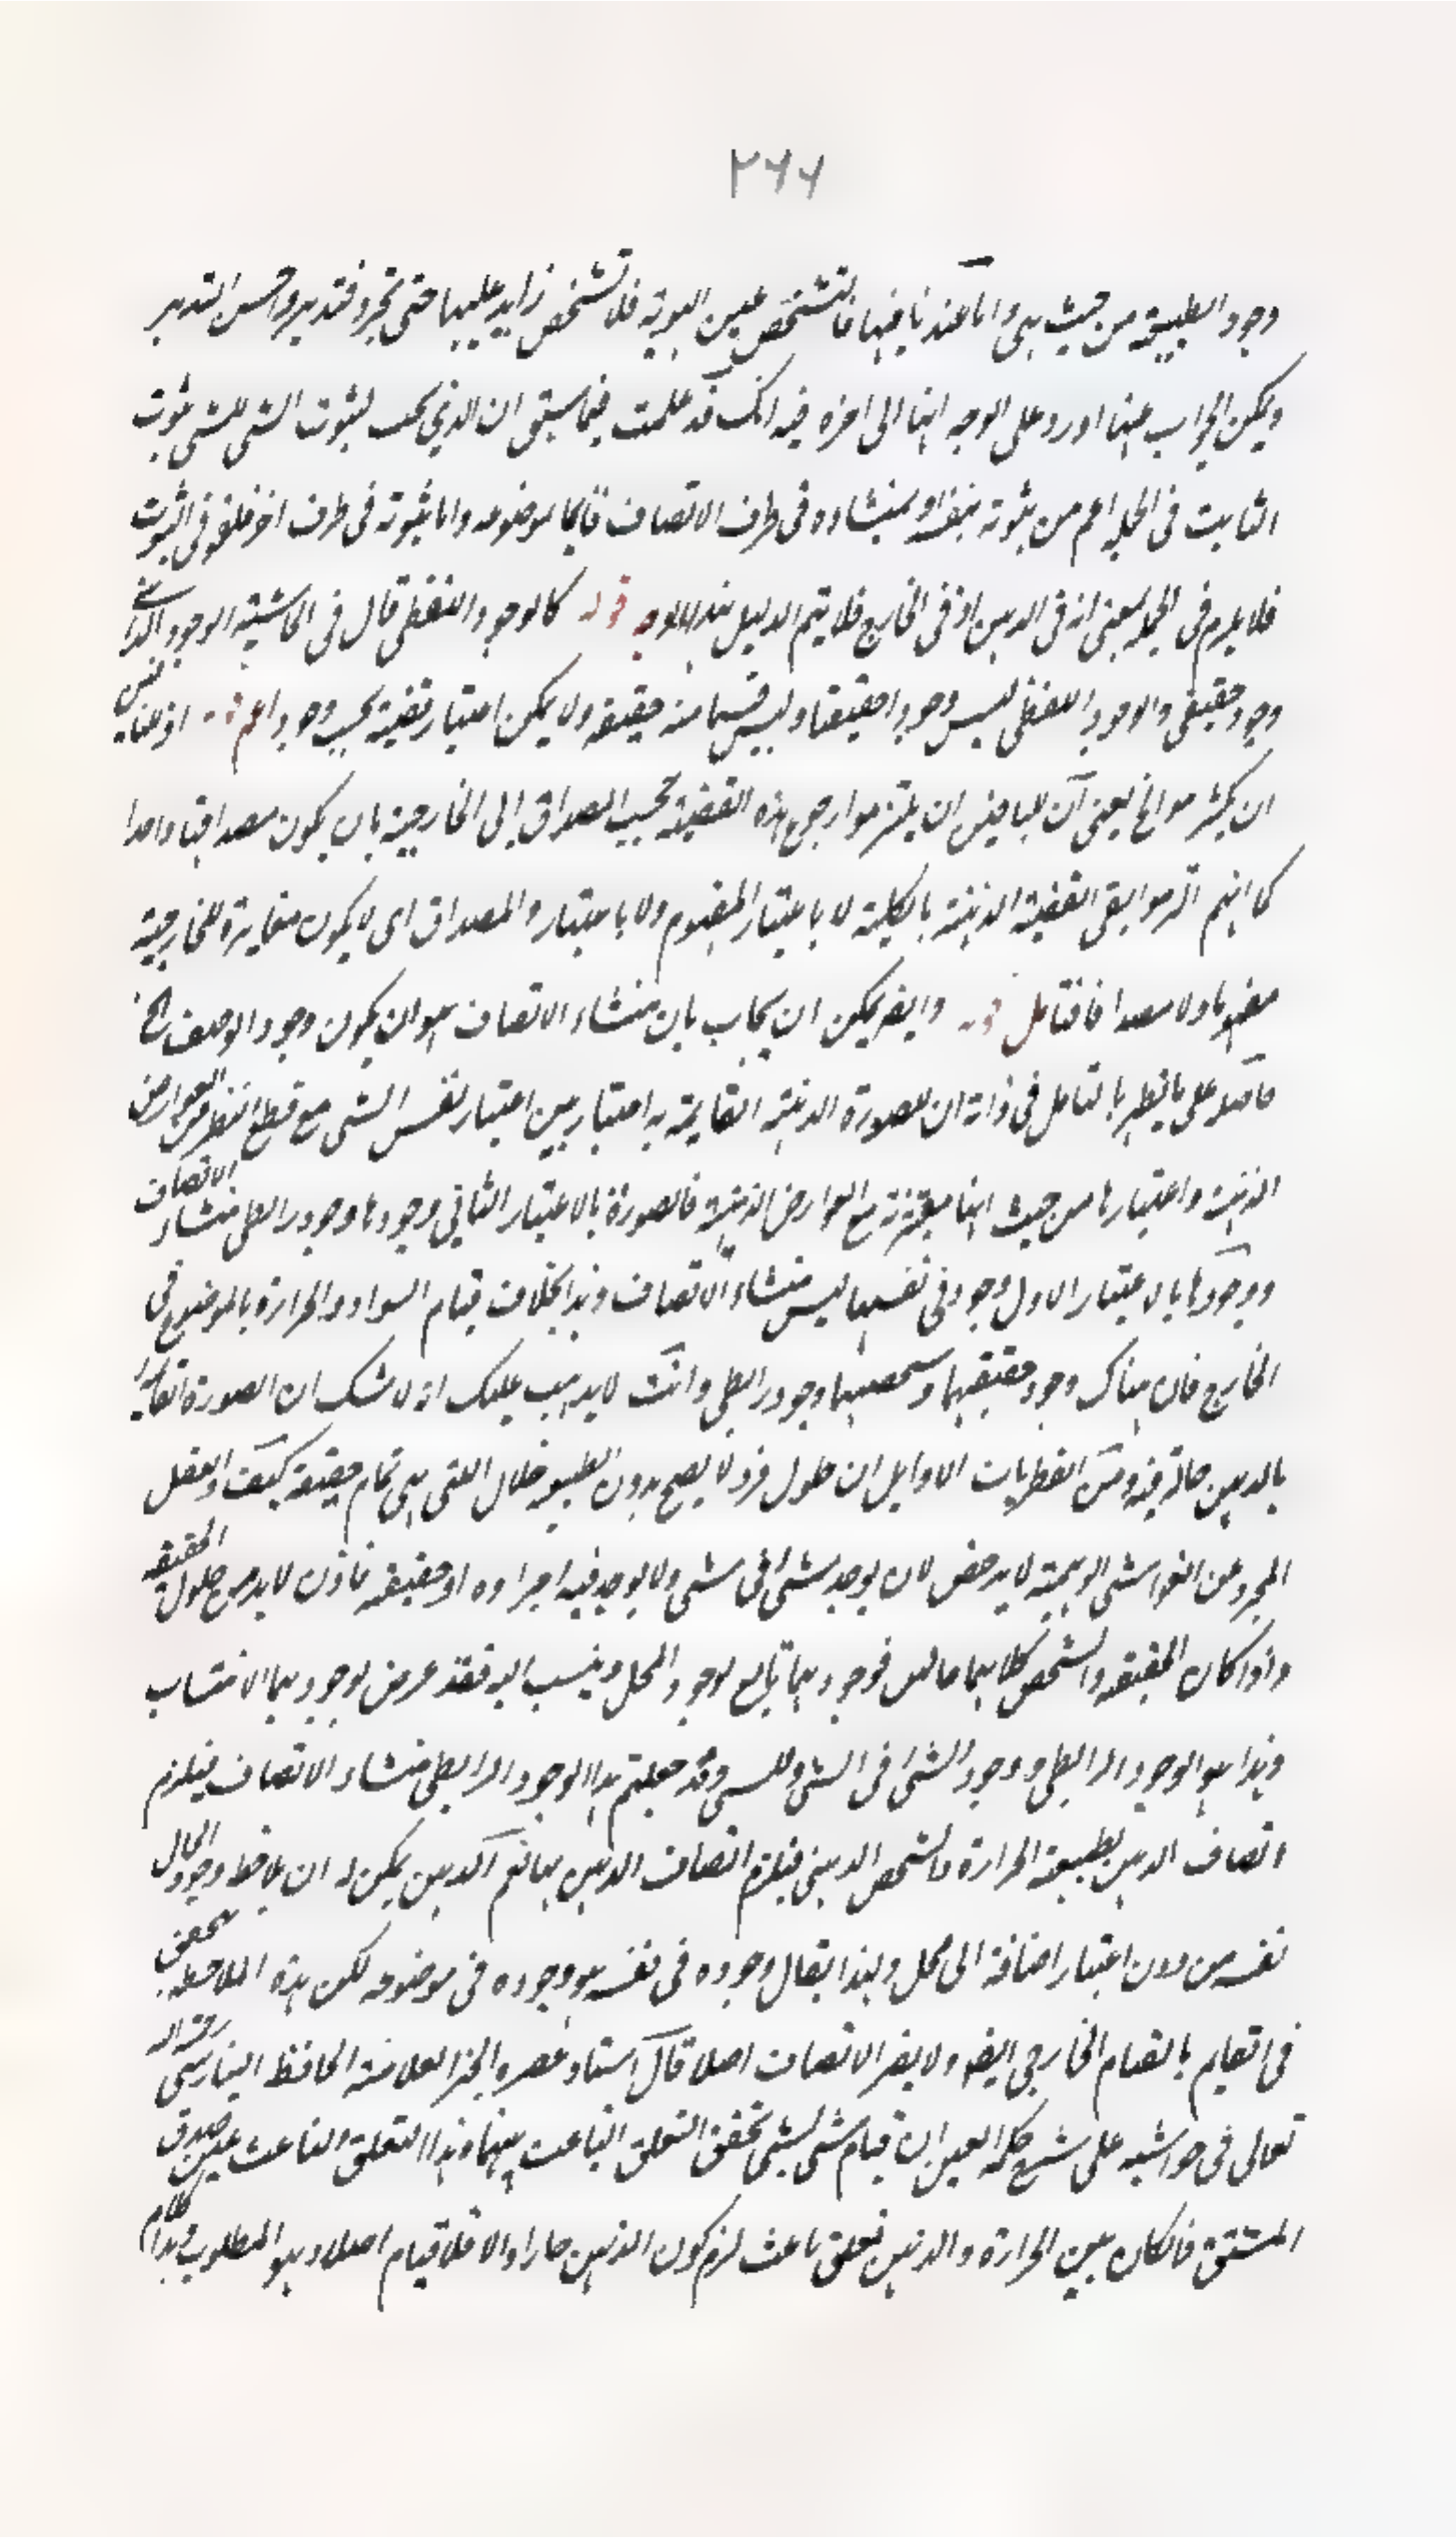 ٢٦٦
وجود الطبيعة من حيث هي واما عند نافيها فالتشخص عين الهوية فلا تشخص زايد عليها حتى تجرد فتدبر واحسن التدبر
ويمكن الجواب عنها اورد على الوجه انها الى اخره فيه انك قد علمت فيما سبق ان الذي يجب لثبوت الشي للشي ثبوت
الثابت في الجملة اعم من ثبوته بنفسه او بمنشاءه في ظرف الاتصاف قايما بموضوعه واما ثبوته في ظرف اخر فلغو في الثبوت
فلا يلزم في الجملة يعني انه في الذهن او في الخارج فلا يتم الدليل بهذا الوجه قوله كالوجود اللفظي قال في الحاشية الوجود الذهني
وجود حقيقي والوجود اللفظي ليس وجودا حقيقيا وليس قسيما منه حقيقة ولا يمكن اعتبار قضية بحسب وجود اعم قوله اذ للنافين
ان يلتزموا الخ يعني آن للنافين ان يلتزموا رجوع هذه القضية بحسب المصداق الى الخارجية بان يكون مصداقها واحدا
كما انهم التزموا بقي القضية الذهنية بالكلية لا باعتبار المفهوم ولا باعتبار والمصداق اي لا يكون مغايرة للخارجية
مفهوما ولا مصداقا فتامل قوله وايضا يمكن ان يجاب بان منشاء الاتصاف هو ان يكون وجود الوصف الخ
حاصله على ما يظهر بالتامل في ذاته ان للصورة الذهنية القايمة به اعتبارين اعتبار نفس الشي مع قطع النظر عن العوارض
الذهنية واعتبارها من حيث انها مقترنة مع العوارض الذهنية فالصورة بالاعتبار الثاني وجودها وجود رابطي منشاء الاتصاف
ووجودها بالاعتبار الاول وجود في نفسها ليس منشاء الاتصاف وهذا بخلاف قيام السواد والحرارة بالموضوع في
الخارج فان هناك وجود حقيقتها وشخصيتها وجود رابطي وانت لا يذهب عليك انه لا شك ان الصورة القايمة
بالذهن حالة فيه ومن الفطريات الاوايل ان حلول فرد لا يصح بدون الطبيعة خلال اللتي هي تمام حقيقة كيف والعقل
المجرد عن الغواشي الوهمية لا يرخص لان يوجد شي في شي ولا يوجد فيه اجزاءه او حقيقته فاذن لا بد من حلول الحقيقة
واذا كان الحقيقة والشخص كلاهما حالين فوجودهما تابع لوجود المحل وينسب اليه فقد عرض لوجودهما الانتساب
وهذا هو الوجود الرابطي ووجود الشي في الشي وللشي وقد جعلتم هذا الوجود الرابطي منشاء الاتصاف فيلزم
اتصاف الذهن بطبيعة الحرارة والشخص الذهني فيلزم اتصاف الذهن بهما نعم الذهن يمكن له ان يلاحظ وجود الحال
نفسه من دون اعتبار اضافة الى محل ولهذا يقال وجوده في نفسه هو وجوده في موضوعه لكن هذه الملاحظة يتحقق
في القايم بالقيام الخارجي ايضا ولا يضر الاتصاف اصلا قال استاد عصره الحبر العلامة الحافظ البنارسي رحمه الله
تعالى في حواشيه على شرح حكمة العين ان قيام شي بشي تحقق التعلق الناعت بينهما وهذا التعلق والناعت عين صدق
المشتق فان كان بين الحرارة والذهن تعلق ناعت لزم كون الذهن حارا والا فلا قيام اصلا وهو المطلوب وهذا كلام